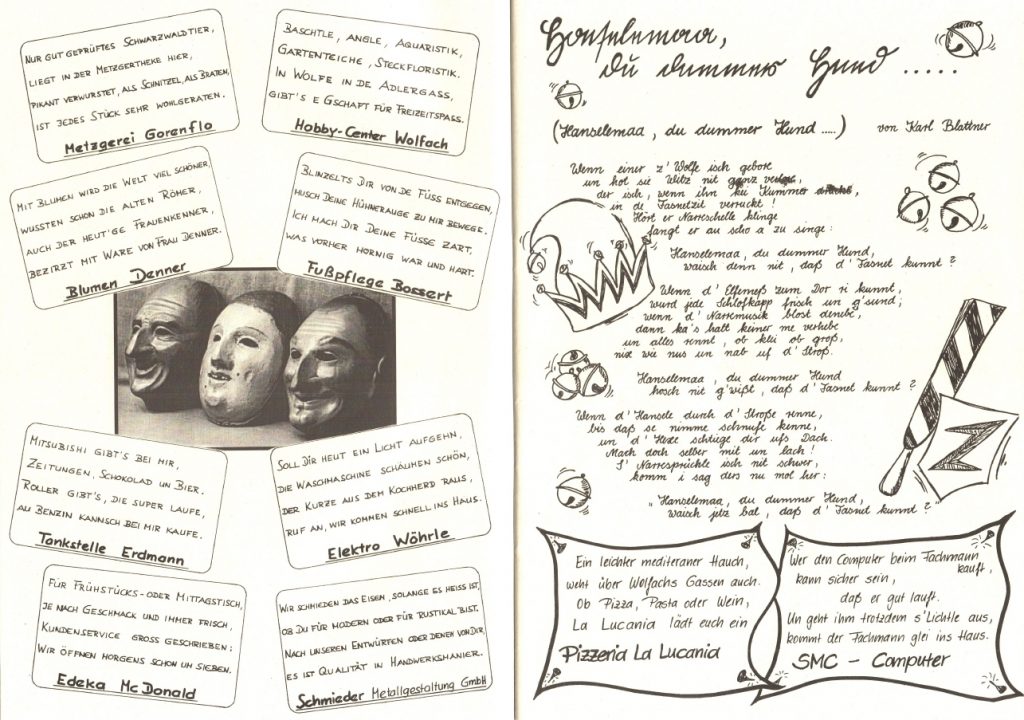 NUR GUT GEPRÜFTES SCHWARZWALDTIER,
LIEGT IN DER METZGERTHEKE HIER,
PIKANT VERWURSTET, ALS SCHNITZEL, ALS BRATEN,
IST JEDES STÜCK SEHR WOHLGERATEN.
Metzgerei Gorenflo
BASCHTLE, ANGLE, AQUARISTIK,
GARTENTEICHE, STECKFLORISTIK.
IN WOLFE IN DE ADLERGASS,
GIBT'S E GSCHAFT FÜR FREIZEITSPASS.
Hobby-Center Wolfach
MIT BLUMEN WIRD DIE WELT VIEL SCHÖNER,
WUSSTEN SCHON DIE ALTEN RÖMER,
AUCH DER HEUT'GE FRAUENKENNER,
BEZIRZT MIT WARE VON FRAU DENNER.
Blumen Denner
BLINZELTS DIR VON DE FÜSS ENTGEGEN,
MUSCH DEINE HÜHNERAUGE ZU MIR BEWEGE.
ICH MACH DIR DEINE FÜSSE ZART,
WAS VORHER HORNIG WAR UND HART.
Fußpflege Bossert
MITSUBISHI GIBT'S BEI MIR,
ZEITUNGEN, SCHOKOLAD UN BIER.
ROLLER GIBT'S, DIE SUPER LAUFE,
AU BENZIN KANNSCH BEI MIR KAUFE.
Tankstelle Erdmann
SOLL DIR HEUT EIN LICHT AUFGEHN,
DIE WASCHMASCHINE SCHÄUMEN SCHÖN,
DER KURZE AUS DEM KOCHHERD RAUS,
RUF AN, WIR KOMMEN SCHNELL INS HAUS.
Elektro Wöhrle
FÜR FRÜHSTÜCKS- ODER MITTAGSTISCH,
JE NACH GESCHMACK UND IMMER FRISCH,
KUNDENSERVICE GROSS GESCHRIEBEN;
WIR ÖFFNEN MORGENS SCHON UM SIEBEN.
Edeka McDonald
WIR SCHMIEDEN DAS EISEN, SOLANGE ES HEISS IST,
OB DU FÜR MODERN ODER FÜR RUSTIKAL BIST.
NACH UNSEREN ENTWÜRFEN ODER DENEN VON DIR,
ES IST QUALITÄT IN HANDWERKSMANIER.
Schmieder Metallgestaltung GmbH
Hanselemaa,
du dummer Hund .....
(Hanselemaa, du dummer Hund .....) von Karl Blattner
Wenn einer z' Wolfe isch gebore
un hot sie Witz nit ganz
der isch, wenn ihn kei Kummer
in de Fasnetzit verruckt!
Hört er Narreschelle klinge
fangt er au scho a zu singe:
Hanselemaa, du dummer Hund,
waisch denn nit, daß d' Fasnet kunnt?
Wenn d' Elfemeß zum Dor ri kunnt,
wurd jede Schlofkapp frisch un g'sund;
wenn d' Narremusik blost denebe,
dann ka's halt keiner me verhebe
un alles rennt, ob klei ob groß,
nix wie nus un nab uf d' Stroß.
Hanselemaa, du dummer Hund
hosch nit g'wißt, daß d' Fasnet kunnt?
Wenn d' Hansele durch d' Stroße renne,
bis daß se nimme schnufe kenne,
un d' Hexe schtiige dir ufs Dach.
Mach doch selber mit un lach!
S' Narresprüchle isch nit schwer,
komm i sag ders nu mol her:
"Hanselemaa, du dummer Hund,
waisch jetz bal, daß d' Fasnet kunnt?"
Ein leichter mediteraner Hauch,
weht über Wolfachs Gassen auch.
Ob Pizza, Pasta oder Wein,
La Lucania lädt euch ein
Pizzeria La Lucania
Wer den Computer beim Fachmann
kauft,
kann sicher sein,
daß er gut lauft.
Un geht ihm trotzdem s'Lichtle aus,
kommt der Fachmann glei ins Haus.
SMC - Computer